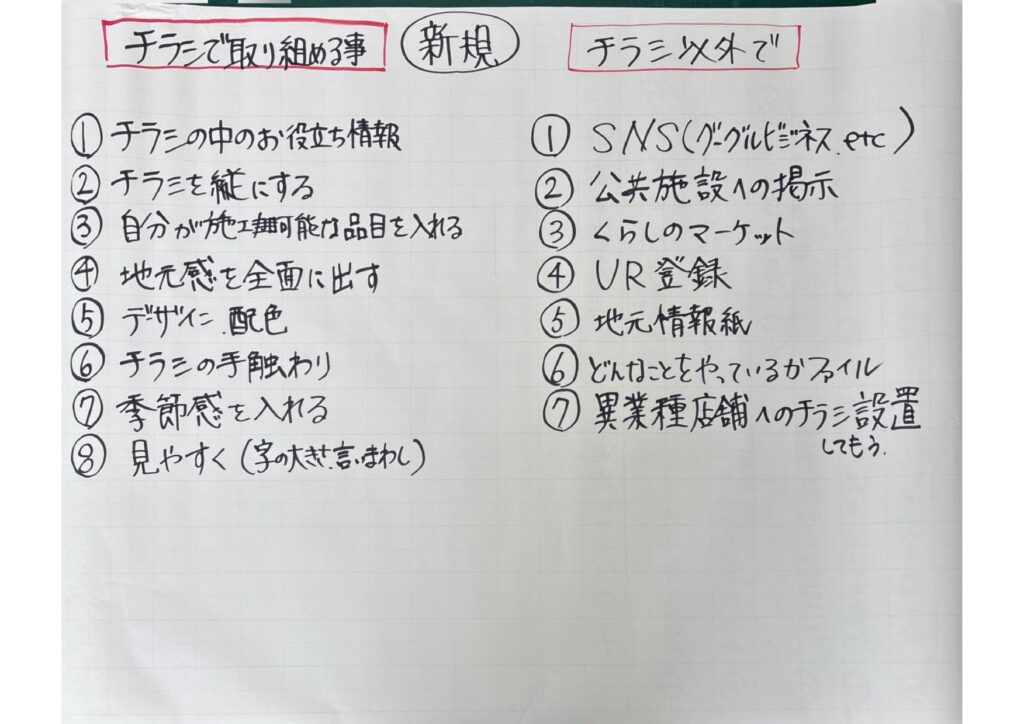 チラシで取り組める事
新規
チラシ以外で
① チラシの中のお役立ち情報
② チラシを縦にする
③ 自分が施工可能な品目を入れる
④ 地元感を全面に出す
⑤ デザイン.配色
⑥ チラシの手触わり
⑦ 季節感を入れる
⑧ 見やすく(字の大きさ.言いまわし)
① SNS(グーグルビジネス.etc)
② 公共施設への掲示
③ くらしのマーケット
④ UR登録
⑤ 地元情報紙
⑥ どんなことをやっているかファイル
⑦ 異業種店舗へのチラシ設置
してもう.